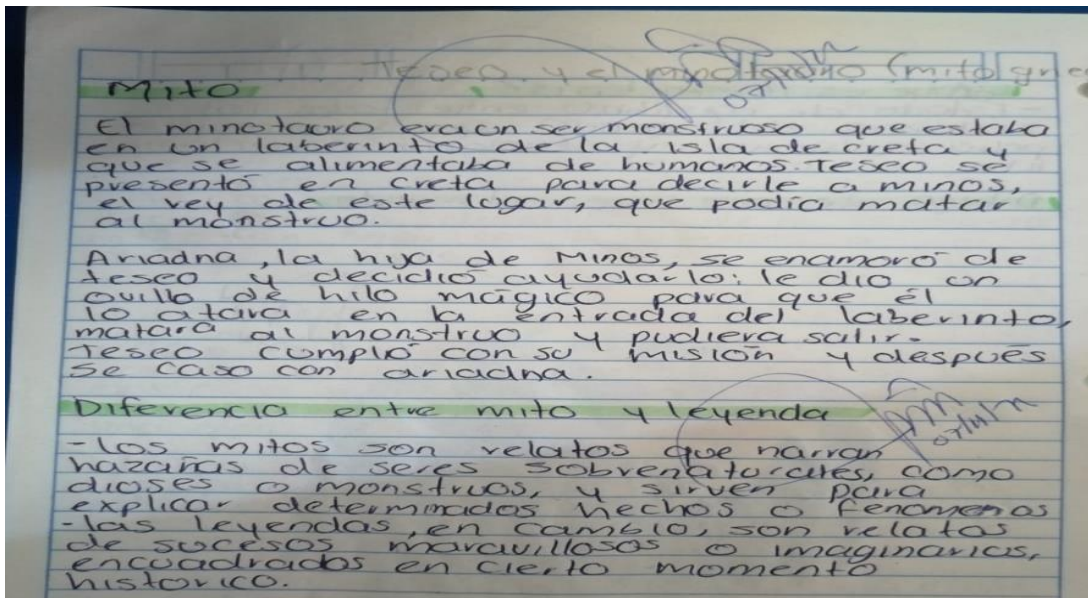 Teseo y el minotauro (mito grie
Mito
El minotauro era un ser monstruoso que estaba
en un laberinto de la isla de creta y
que se alimentaba de humanos. Teseo se
presentó en creta para decirle a minos,
el rey de este lugar, que podía matar
al monstruo.
Ariadna, la hija de Minos, se enamoró de
teseo y decidió ayudarlo: le dio un
ovillo de hilo mágico para que él
lo atara en la entrada del laberinto,
matara al monstruo y pudiera salir.
Teseo cumplió con su misión y después
se caso con ariadna.
Diferencia entre mito y leyenda
-los mitos son relatos que narran
hazañas de seres sobrenaturales, como
dioses o monstruos, y sirven para
explicar determinados hechos o fenomenos
-las leyendas, en cambio, son relatos
de sucesos maravillosos o imaginarios,
encuadrados en cierto momento
historico.